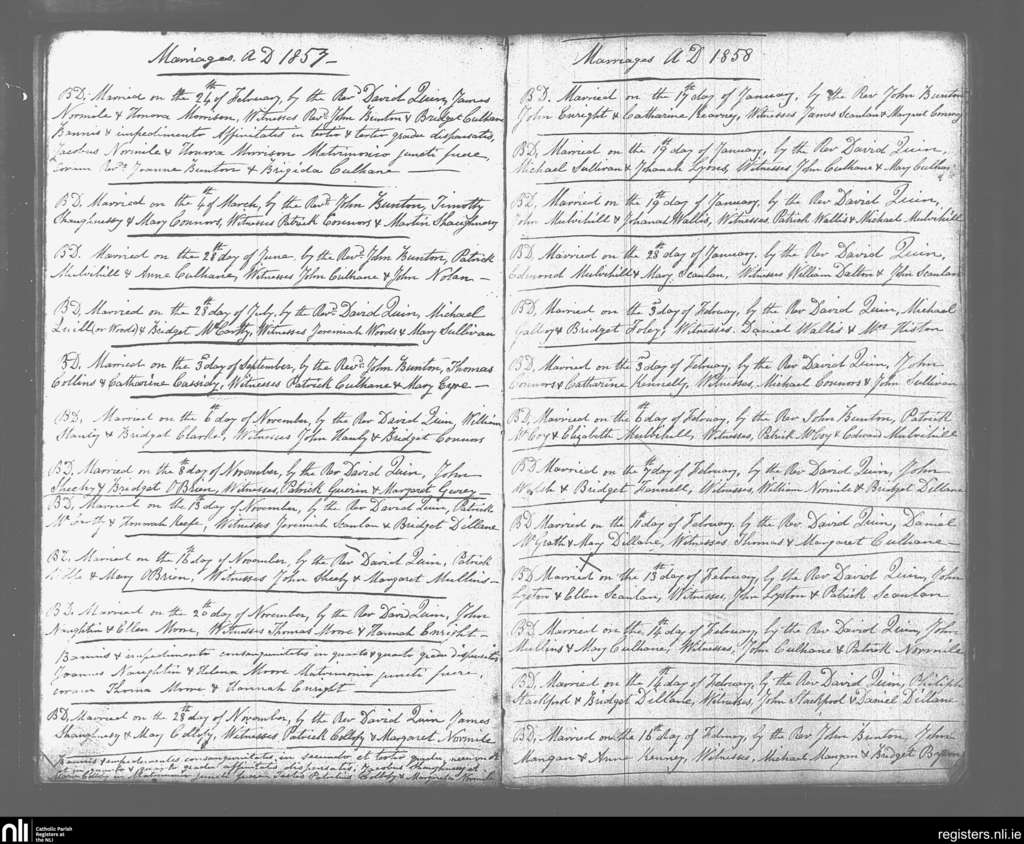 Marriages. A D 1857
BD. Married on the 24th of February, by the Revd David Quin, James
Normile & Honora Morrison, Witnesses Revd John Bunton & Bridget Culhane
Bannis & impedimento Affinitatis in tertio & tertio gradu dispensatis,
Jacobus Normile & Honora Morrison Matrimonio juncti fuere,
coram Revdo Joanne Bunton & Brigida Culhane
BD. Married on the 4th of March, by the Revd John Bunton, Timothy
Shaughnessy & Mary Connors, Witnesses Patrick Connors & Martin Shaughnessy
BD. Married on the 28th day of June by the Revd John Bunton, Patrick
Mulvihill & Anne Culhane, Witnesses John Culhane & John Nolan
BD. Married on the 28th day of July, by the Revd David Quin, Michael
Quill (or Woods) & Bridget McCarthy, Witnesses Jeremiah Woods & Mary Sullivan
BD. Married on the 3rd day of September, by the Revd John Bunton, Thomas
Collins & Catharine Cassidy, Witnesses Patrick Culhane & Mary Eyre
BD. Married on the 6th day of November, by the Rev David Quin, William
Hanly & Bridget Clarke, Witnesses John Hanly & Bridget Connors
BD. Married on the 8th day of November, by the Rev David Quin, John
Sheehy & Bridget O'Brien, Witnesses, Patrick Guerin & Margaret
BD. Married on the 13th day of November, by the Rev David Quin, Patrick
& Honorah Keefe, Witnesses Jeremiah Scanlan & Bridget Dillane
BD. Married on the 16th day of November, by the Rev David Quin, Patrick
& Mary O'Brien, Witnesses John Sheehy & Margaret Mullins
BD. Married on the 20th day of November, by the Rev David Quin, John
Naughtin & Ellen Moore, Witnesses Thomas Moore & Hannah Enright
Bannis & impedimento consanguinitatis in quarto & quarto gradu dispensatis
Joannes Naughtin & Helena Moore Matrimonio juncti fuere,
coram Thoma Moore & Hannah Enright
BD. Married on the 28th day of November, by the Rev David Quin James
Shaughnessy & Mary Witnesses Patrick & Margaret Normile
Bannis & impedimentis consanguinitatis, in secundo et tertio gradu, necnon
in quarto & quarto gradu affinitatis dispensatis, Jacobus Shaughnessy et
Maria in Matrimonio juncti fuere Testes Patricius & Margarita Normile
Marriages A D 1858
BD. Married on the 17th day of January, by the Rev John Bunton
John Enright & Catharine Kearney, Witnesses James Scanlan & Margaret Conway
BD. Married on the 19th day of January, by the Rev David Quin,
Michael Sullivan & Johanah Lyons, Witnesses John Culhane & Mary Culhane
BD. Married on the 19th day of January, by the Rev David Quin,
John Mulvihill & Johanah Wallis, Witnesses, Patrick Wallis & Michael Mulvihill
BD. Married on the 28th day of January, by the Rev David Quin,
Edmond Mulvihill & Mary Scanlan, Witnesses William Dalton & John Scanlan
BD. Married on the 3rd day of February, by the Rev David Quin, Michael
& Bridget Foley, Witnesses. Daniel Wallis & Mrs Histon
BD. Married on the 3rd day of February, by the Rev David Quin, John
Connors & Catharine Kennelly, Witnesses, Michael Connors & John Sullivan
BD. Married on the 6th day of February, by the Rev John Bunton, Patrick
McCoy & Elizabeth Mulvihill, Witnesses, Patrick McCoy & Edward Mulvihill
BD. Married on the 9th day of February, by the Rev David Quin, John
Walsh & Bridget Fennell, Witnesses, William Normile & Bridget Dillane
BD. Married on the 11th day of February, by the Rev David Quin, Daniel
McGrath & Mary Dillane, Witnesses Thomas & Margaret Culhane
BD. Married on the 13th day of February, by the Rev David Quin, John
Lyston & Ellen Scanlan, Witnesses, John Lyston & Patrick Scanlan
BD. Married on the 14th day of February, by the Rev David Quin, John
Mullins & Mary Culhane, Witnesses, John Culhane & Patrick Normile
BD. Married on the 14th day of February, by the Rev David Quin,
Stackpool & Bridget Dillane, Witnesses, John Stackpool & Daniel Dillane
BD. Married on the 16th day of February by the Rev John Bunton, John
Mangan & Anne Kenney, Witnesses, Michael Mangan & Bridget
nli
Catholic Parish
Registers at
the NLI
registers.nli.ie